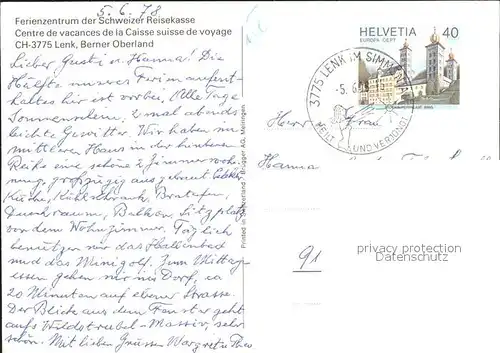 5.6.78
Ferienzentrum der Schweizer Reisekasse
Centre de vacances de la Caisse suisse de voyage
CH-3775 Lenk, Berner Oberland
Lieber Gusti u. Hanna! Die
Hälfte unseres Ferienaufent-
haltes hier ist vorbei. Alle Tage
Sonnenschein. 2 mal abends
leichte Gewitter. Wir haben im
mittleren Haus in der hinteren
Reihe eine schöne 2 Zimmerwohn-
ung, grosszügig ausgebaut
Küche, Kühlschrank, Bratofen,
Duschraum, Balkon, Sitzplatz
vor dem Wohnzimmer. Täglich
benützen wir das Hallenbad
und das Minigolf. Zum Mittag-
essen gehen wir ins Dorf, ca
20 Minuten auf ebener Strasse.
Der Blick aus dem Fenster geht
aufs Wildstrubel-Massiv, sehr
schön. Mit lieben Grüssen Margrit u Theo
Printed in Switzerland / Brügger AG, Meiringen
HELVETIA 40
EUROPA CEPT
3775 LENK IM SIMMENTAL
-5.6.
HEILT UND VERJÜNGT
Herr Frau
Hanna
91
privacy protection
Datenschutz